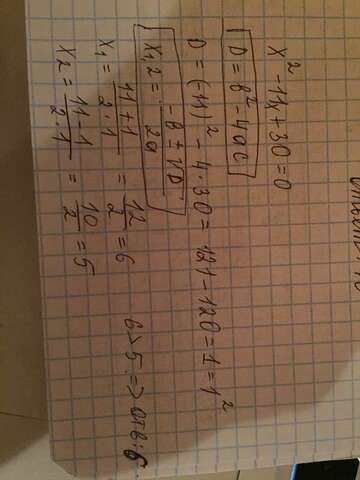 x² - 11x + 30 = 0
D = b² - 4ac
D = (-11)² - 4 · 30 = 121 - 120 = 1 = 1²
x₁,₂ = (-b ± √D) / 2a
x₁ = (11 + 1) / (2 · 1) = 12/2 = 6
x₂ = (11 - 1) / (2 · 1) = 10/2 = 5
6 > 5 => отв: 6